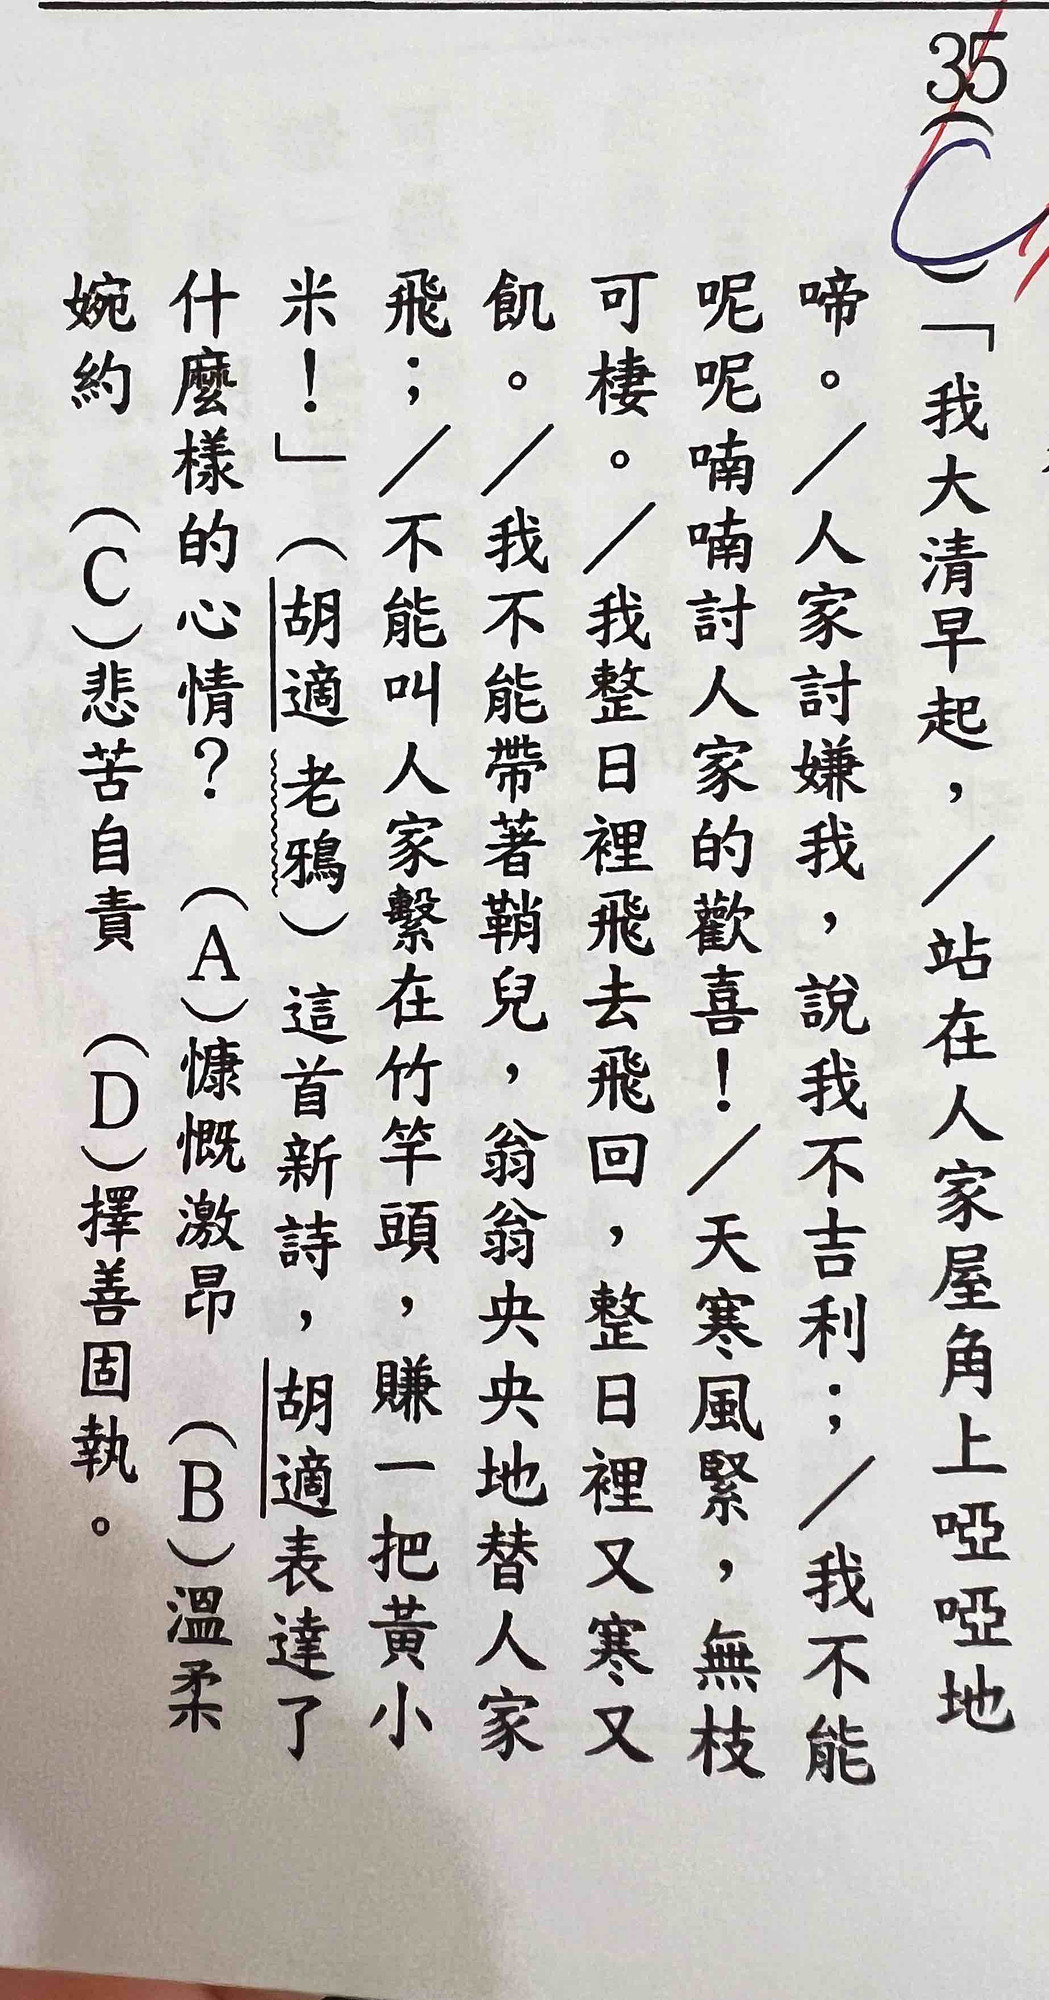 35(C)「我大清早起，／站在人家屋角上啞啞地
啼。／人家討嫌我，說我不吉利；／我不能
呢呢喃喃討人家的歡喜！／天寒風緊，無枝
可棲。／我整日裡飛去飛回，整日裡又寒又
飢。／我不能帶著鞘兒，翁翁央央地替人家
飛；／不能叫人家繫在竹竿頭，賺一把黃小
米！」（胡適 老鴉）這首新詩，胡適表達了
什麼樣的心情？ (A)慷慨激昂 (B)溫柔
婉約 (C)悲苦自責 (D)擇善固執。